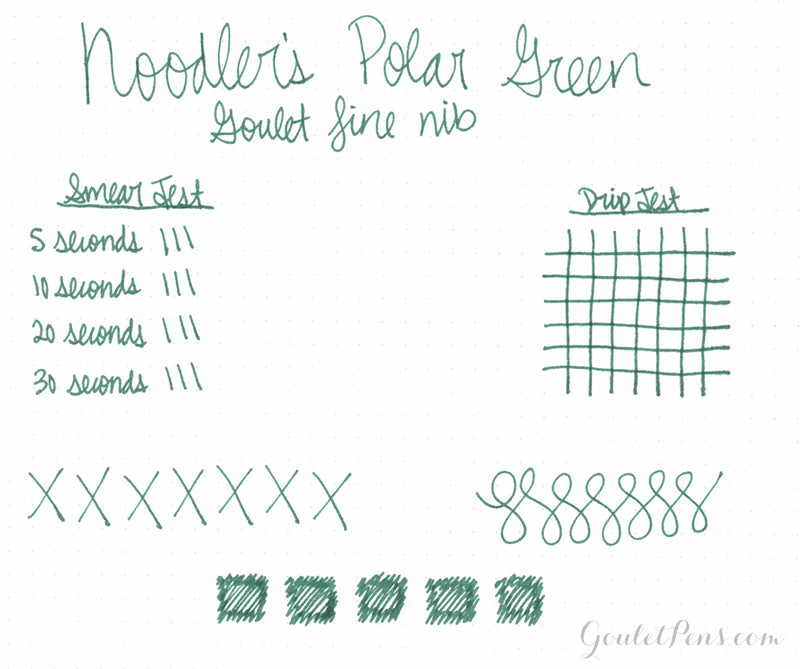 Noodler's Polar Green
Goulet fine nib
Smear Test
5 seconds
10 seconds
20 seconds
30 seconds
Drip Test
X X X X X X X
GouletPens.com